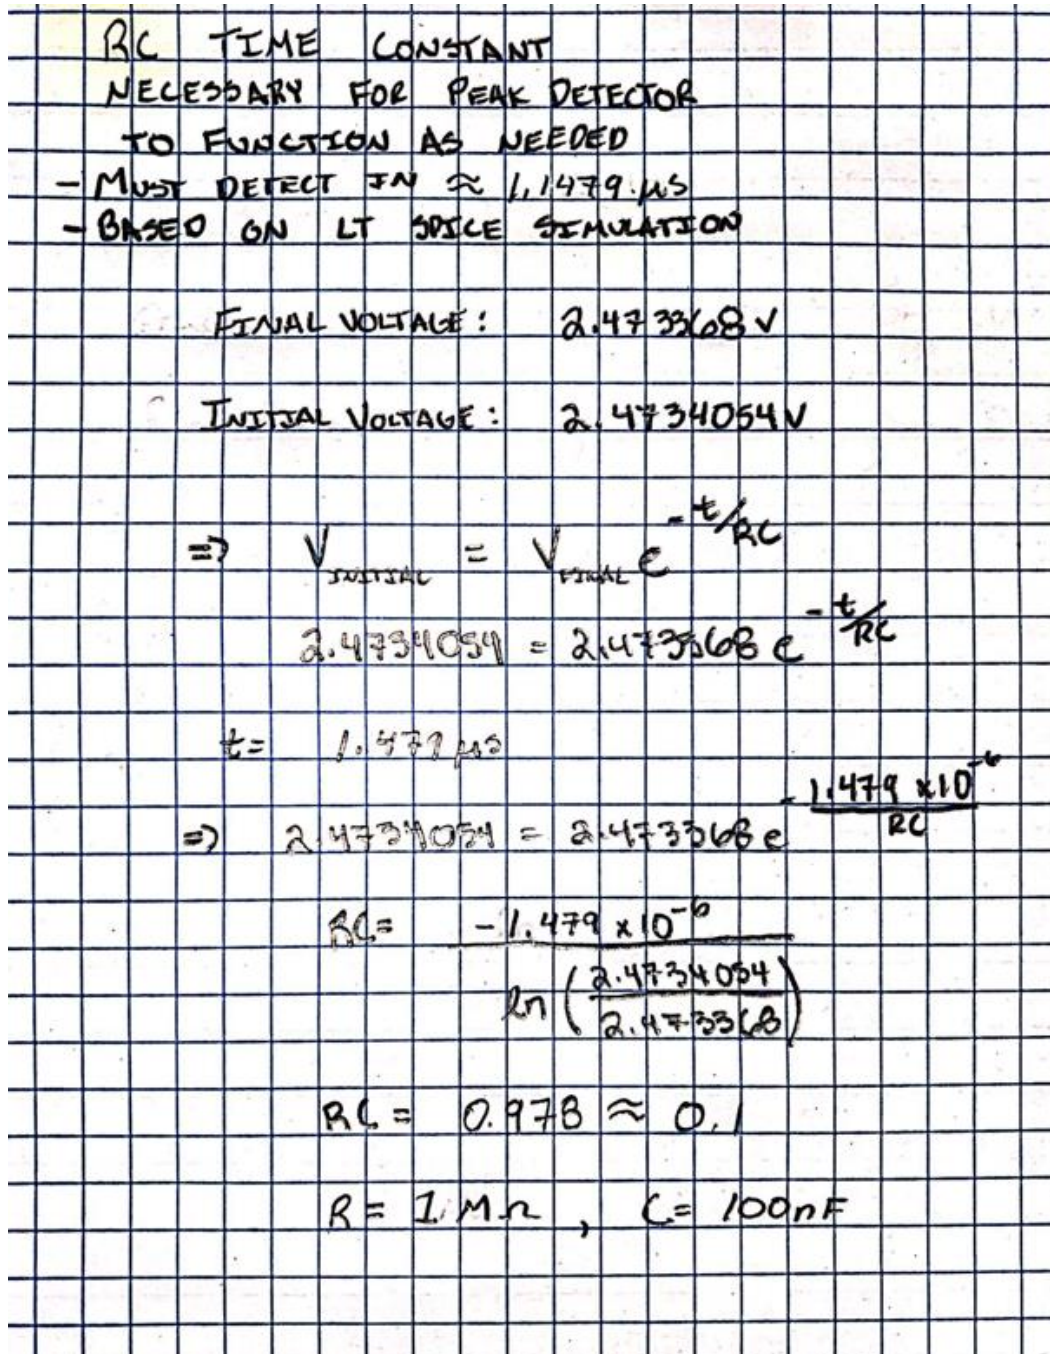 RC TIME CONSTANT
NECESSARY FOR PEAK DETECTOR
TO FUNCTION AS NEEDED
- MUST DETECT IN ≈ 1.1479 μs
- BASED ON LT SPICE SIMULATION
FINAL VOLTAGE: 2.473368 V
INITIAL VOLTAGE: 2.4734054 V
=> V_INITIAL = V_FINAL e^(-t/RC)
2.4734054 = 2.473368 e^(-t/RC)
t = 1.479 μs
=> 2.4734054 = 2.473368 e^(-1.479 x10^-6 / RC)
RC = -1.479 x10^-6 / ln(2.4734054 / 2.473368)
RC = 0.978 ≈ 0.1
R = 1 MΩ, C = 100nF